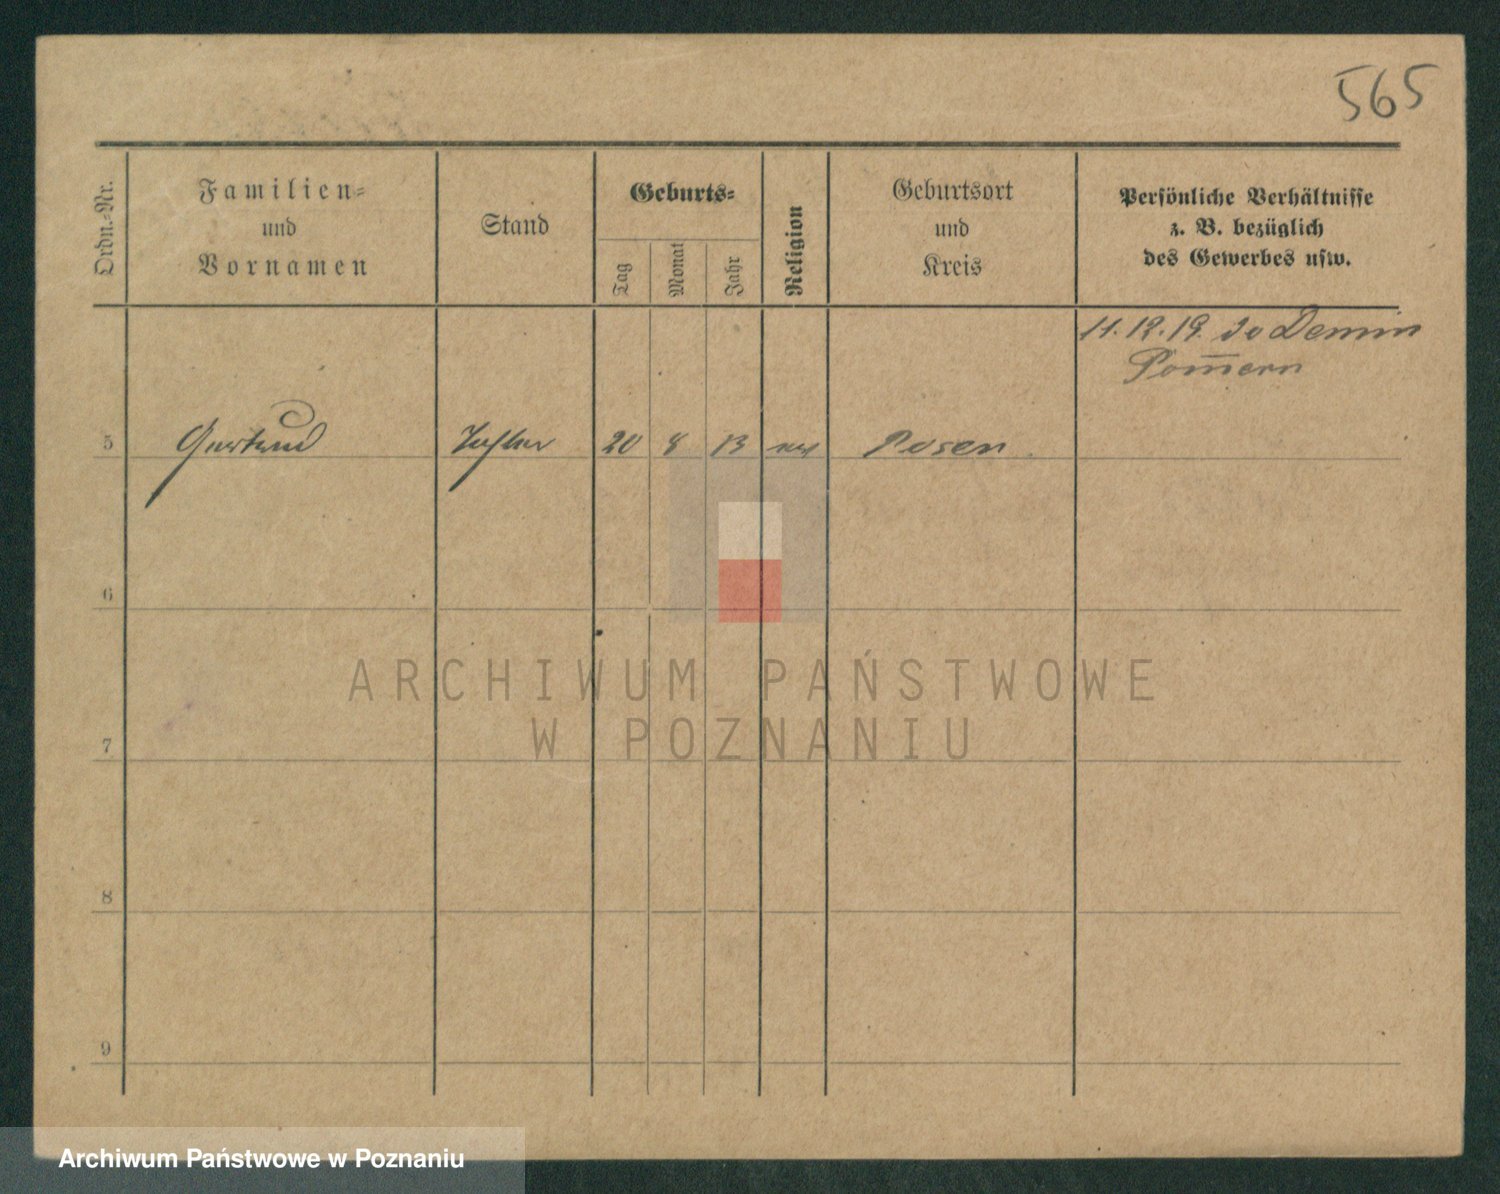 565
Ordn.-Nr.
Familien-
und
Vornamen
Stand
Geburts-
Tag
Monat
Jahr
Religion
Geburtsort
und
Kreis
Persönliche Verhältnisse
z. B. bezüglich
des Gewerbes usw.
11. 12. 19. Demmin
Pom̅ern
5 Gertrud Tochter 20 8 13 Posen
6
7
8
9
ARCHIWUM PAŃSTWOWE
W POZNANIU
Archiwum Państwowe w Poznaniu